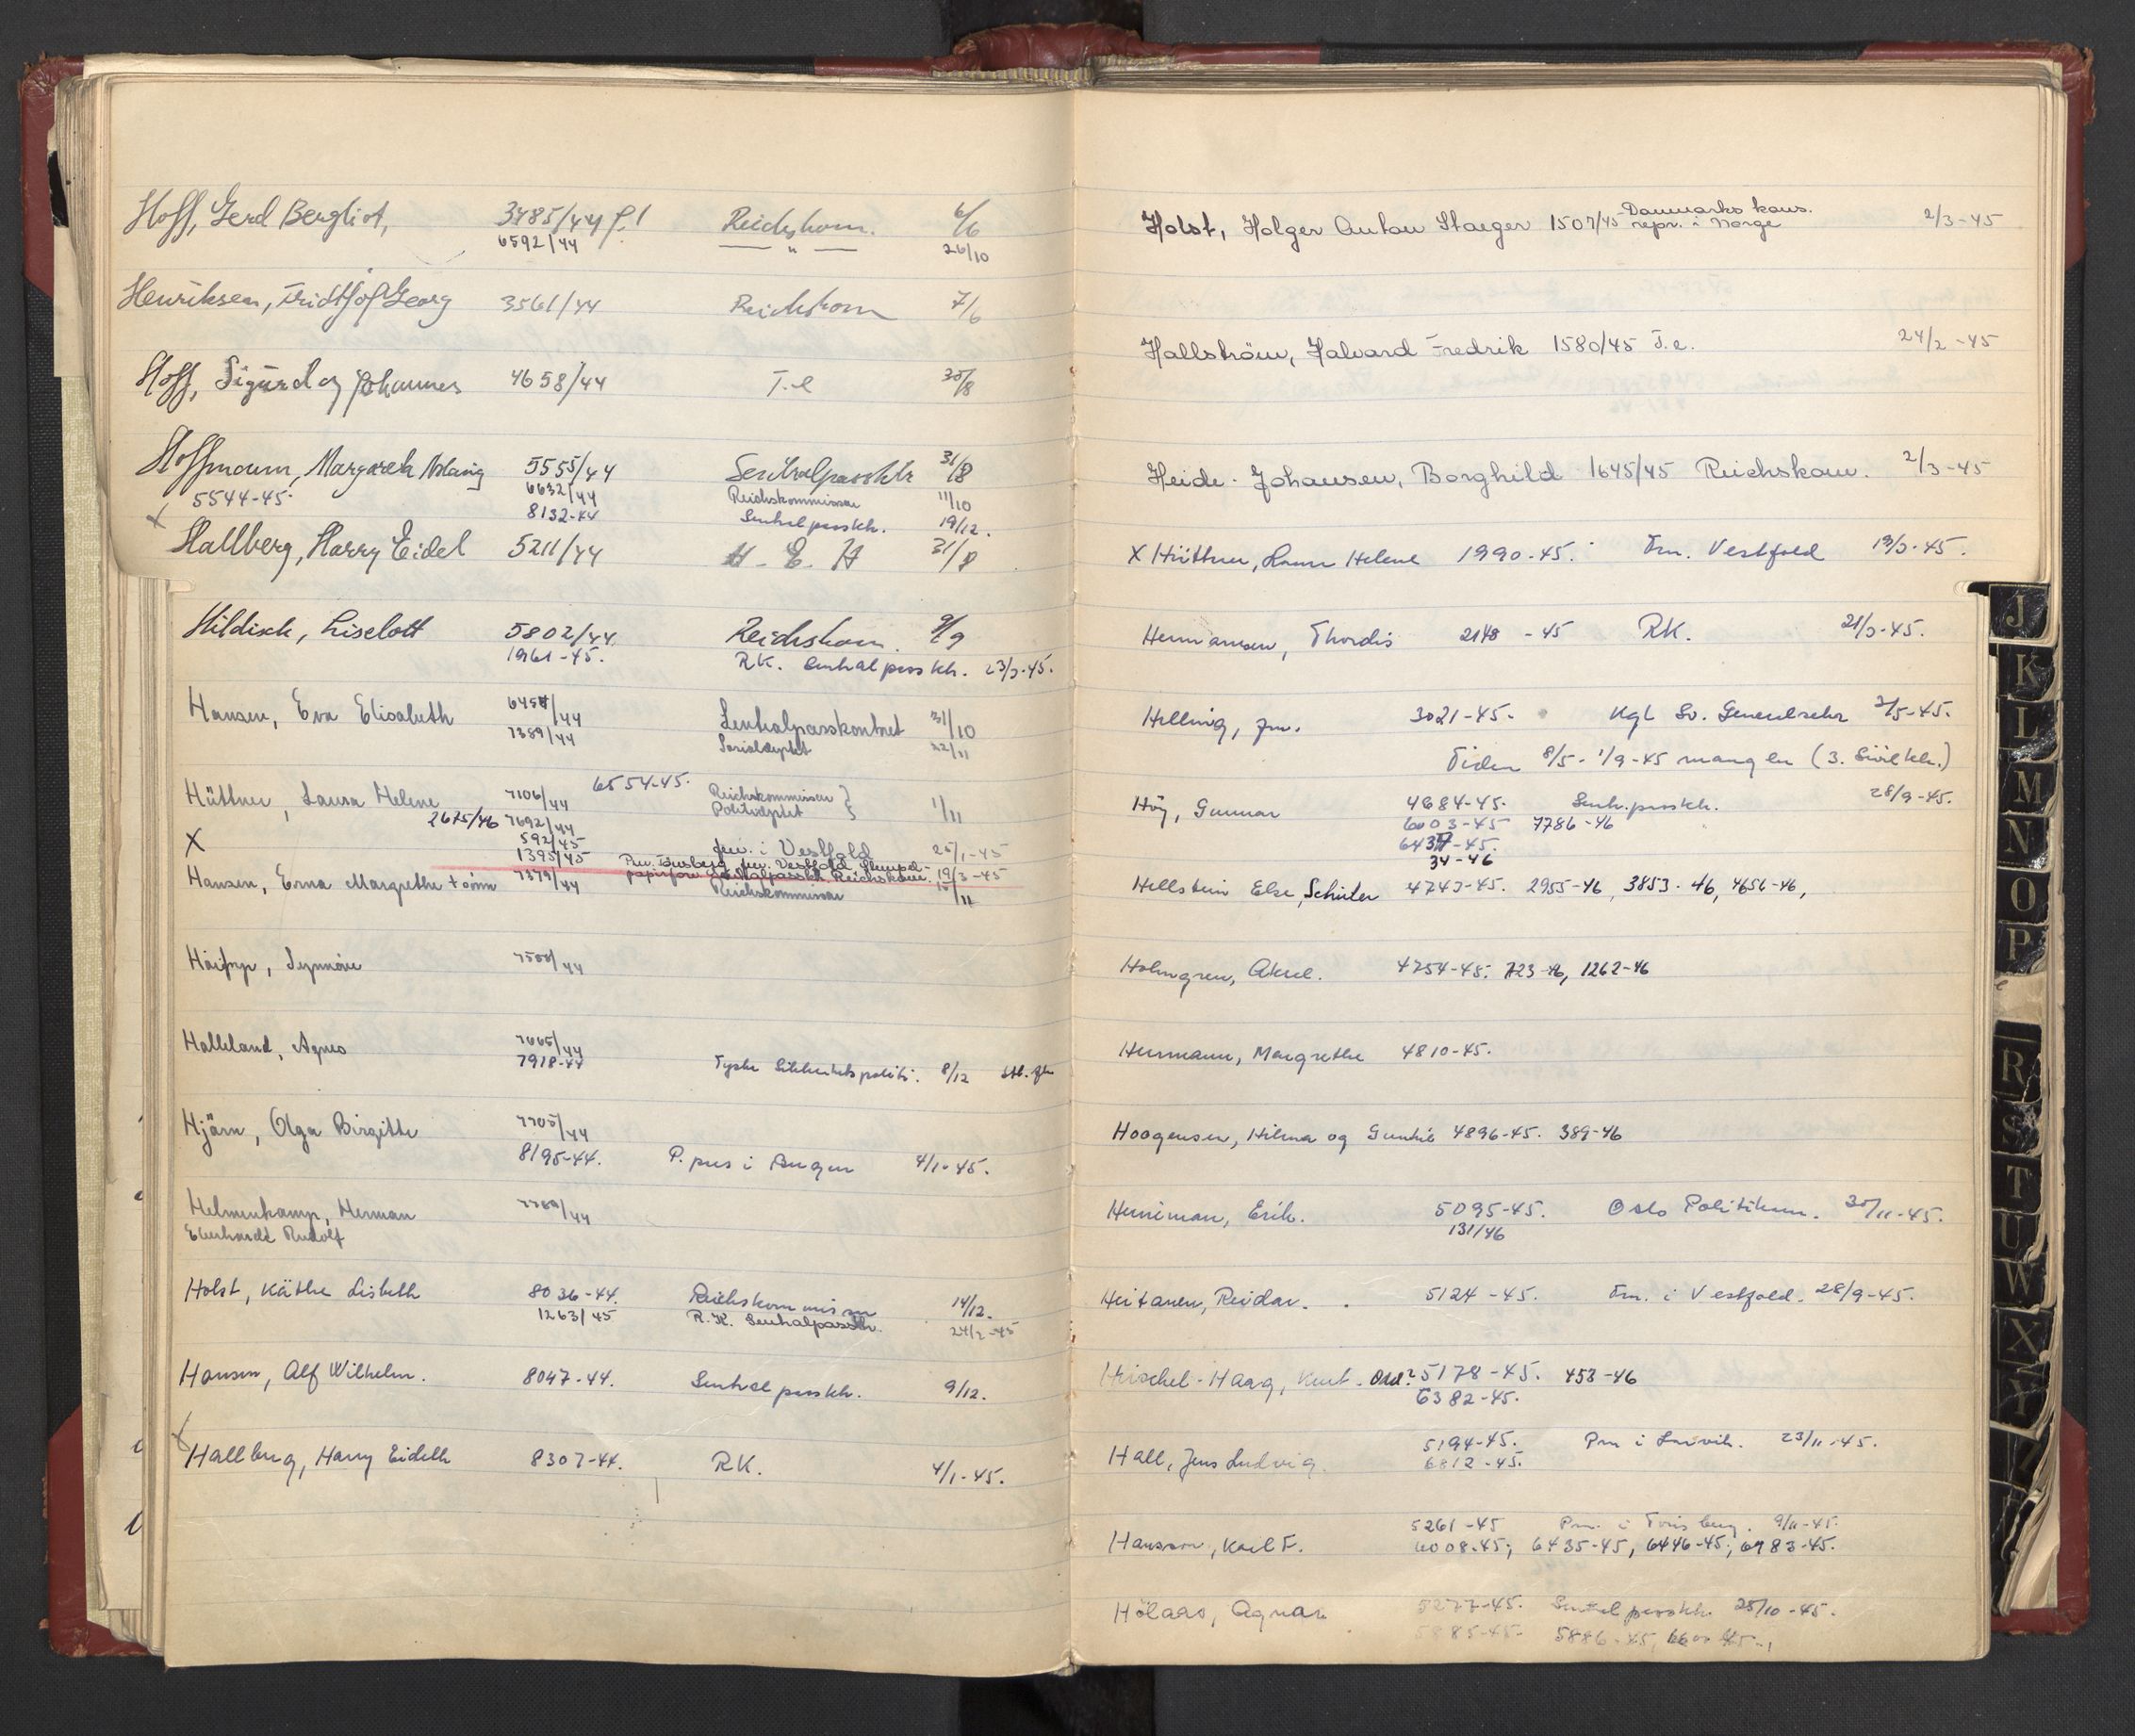 Hoff, Gerd Bergliot, 3485/44 f.l Reichskom. 6/6
6592/44 — " — 26/10
Henriksen, Fridtjof Georg 3561/44 Reichskom 7/6
Hoff, Sigurd og Johannes 4658/44 T.e 30/8
Hoffmann, Margareth 5555/44 Sentralpassktr 31/8
5544-45 6632/44 Reichskommissar 11/10
8132-44 Sentralpassktr. 19/12.
x Hallberg, Harry Eidel 5211/44 H.E.H 31/8
Hildisch, Liselott 5802/44. Reichskom. 9/9
1961-45. RK. Sentralpassktr. 23/3-45.
Hansen, Eva Elisabeth 6454/44 Sentralpasskontret 31/10
7389/44 Sosialdeptet 22/11
Hüttner, Laura Helene 7106/44 6554-45. Reichskommissar } 1/11
2675/46 7692/44 Politideptet }
X 592/45 fm. i Vestfold 25/1-45
1395/45 Pm. Tønsberg, fm. Vestfold Stempel-
papirforv. Sentralpassktr. Reichskom. 19/3-45
Hansen, Erna Margrethe + sønn 7379/44 Reichskommissar 10/11
7500/44
Halleland, Agnes 7665/44
7918-44 Tyske Sikkerhetspoliti. 8/12
Hjärn, Olga Birgitte 7705/44
8195-44. P. pres i Bergen 4/1-45.
Helmenkamp, Herman 7760/44
Eberhardt Rudolf
Holst, Käthe Lisbeth 8036-44. Reichskommissar 14/12.
1263/45 R.K. Sentralpassktr. 24/2-45
Hansen, Alf Wilhelm. 8047-44. Sentralpassktr. 9/12.
x Hallberg, Harry Eideth 8307-44. RK. 4/1-45.
Holst, Holger Anton Staeger 1507/45 Danmarks kons. repr. i Norge 2/3-45
Hallström, Halvard Fredrik 1580/45 T.e. 24/2-45
Heide-Johansen, Borghild 1645/45 Reichskom. 2/3-45
X Hüttner, Laura Helene 1990-45. Fm. Vestfold 19/3-45.
Hermansen, Thordis 2148-45 RK. 21/3-45.
Helling, Jm. 3021-45. Kgl Sv. Generalsekr 2/5-45.
Tiden 8/5-1/9-45 mangler (3. Sivilktr.)
Höy, Gunnar 4684-45. Sentr.passktr. 28/9-45.
6003-45 7786-46
6437-45.
34-46
Hellstein Else, Schüler 4743-45. 2955-46, 3853-46, 4656-46,
Holmgren, Aksel. 4754-45. 723-46, 1262-46
Hermann, Margrethe 4810-45.
Hoogensen, Hilma og Gunhil 4896-45. 389-46
Heniman, Erik. 5095-45. Oslo Politikam. 30/11-45.
131/46
Heitanen, Reidar. 5124-45. Fm. i Vestfold. 28/9-45.
Heischel-Haag, Kurt. 5178-45. 458-46
6382-45.
Hall, Jens Ludvig. 5194-45. Pm i Larvik. 23/11-45.
6812-45.
5261-45 Pm. i Tønsberg. 9/11-45.
Hansson, Karl F. 6008-45; 6435-45, 6446-45; 6983-45.
Hölaas, Agnar 5277-45. Sentralpassktr. 25/10-45.
5885-45. 5886-45,
J
K
L
M
N
O
P
R
S
T
U
W
X
Y